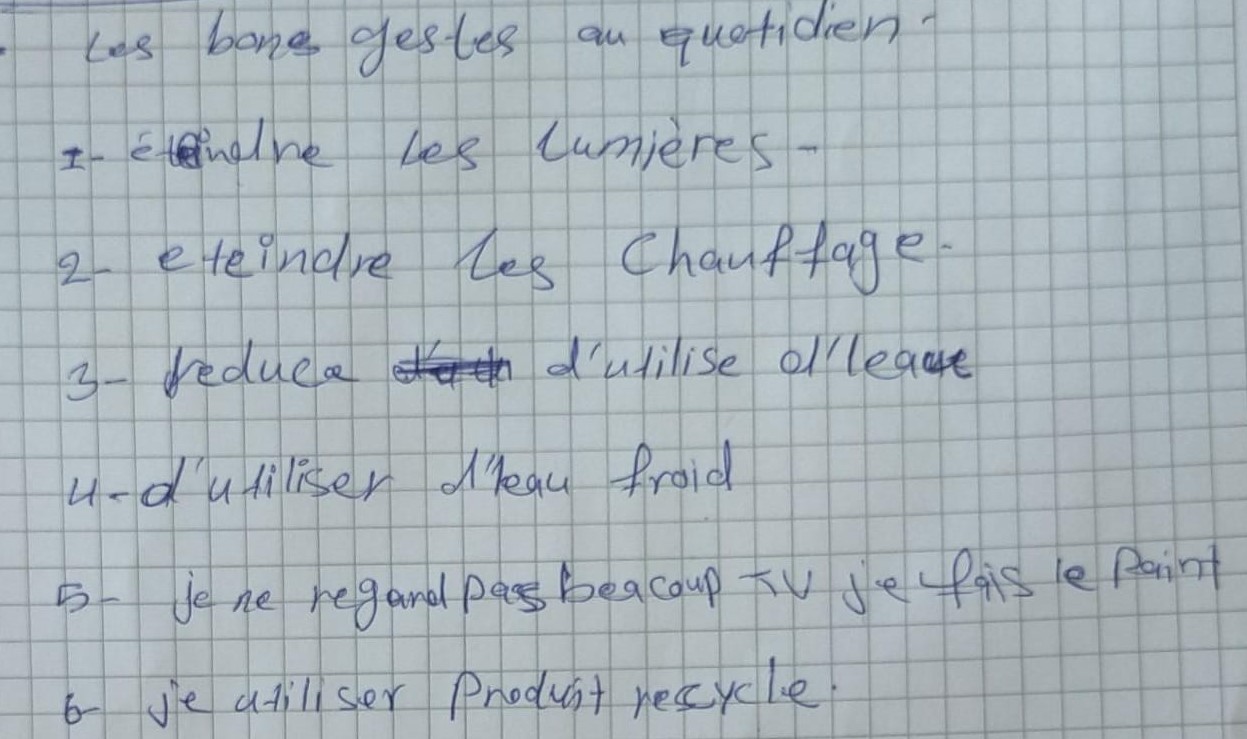 Les bons gestes au quotidien.
1- éteindre les lumières -
2- eteindre les chauffage.
3- reduce d'utilise d'leaue
4- d'utiliser d'leau froid
5- je ne regand pas beacoup TV je fais le Paint
6- je utiliser Produit recycle.